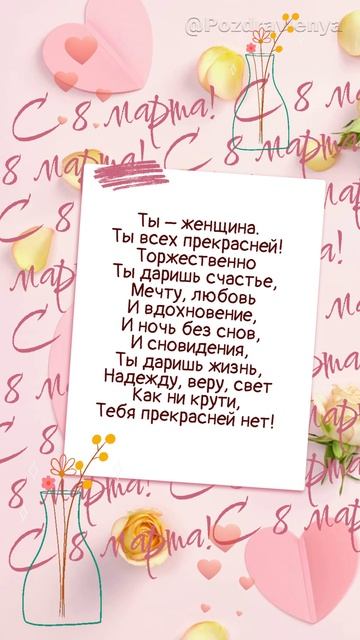 @Pozdravlenya
С 8 марта!
С 8 марта!
С 8 марта!
Ты – женщина.
Ты всех прекрасней!
Торжественно
Ты даришь счастье,
Мечту, любовь
И вдохновение,
И ночь без снов,
И сновидения,
Ты даришь жизнь,
Надежду, веру, свет
Как ни крути,
Тебя прекрасней нет!
С 8 марта!
С 8 марта!